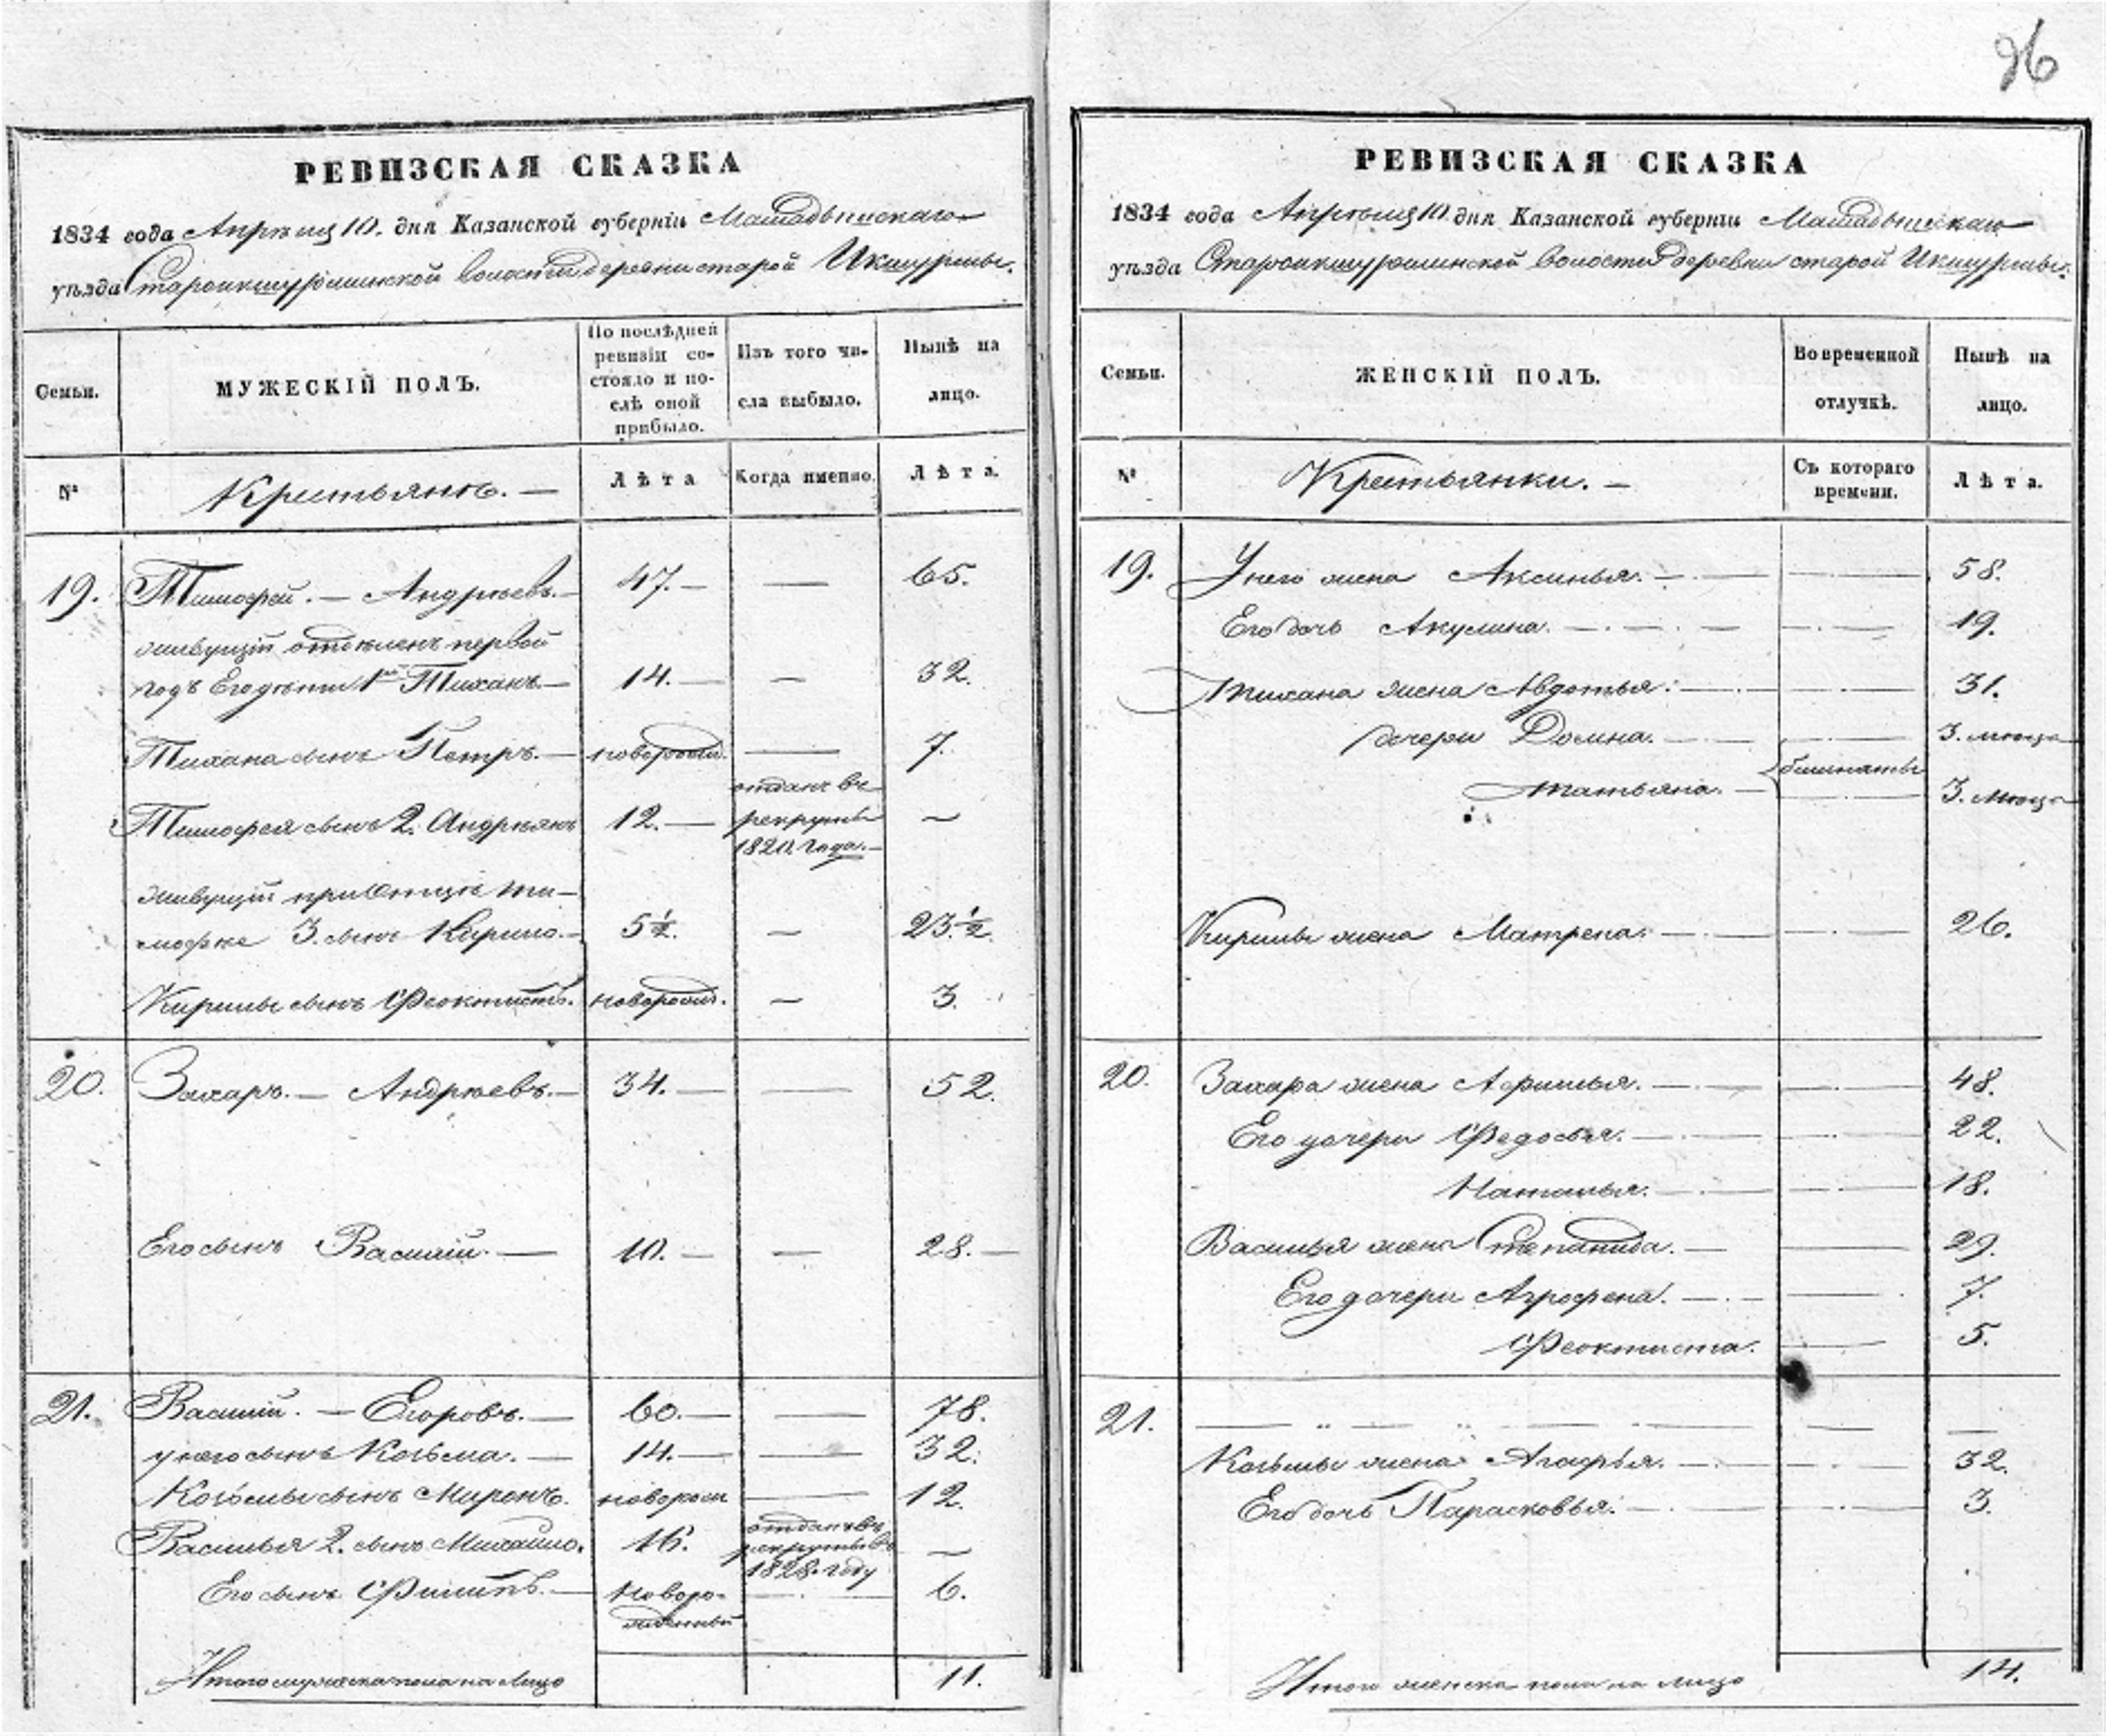 96
РЕВИЗСКАЯ СКАЗКА
1834 года Апрѣля 10. дня Казанской губерніи Мамадышскаго
уѣзда Староикшурминской волости деревни старой Икшурмы.
Семьи.
МУЖЕСКІЙ ПОЛЪ.
По послѣдней
ревизіи со-
стояло и по-
слѣ оной
прибыло.
Изъ того чи-
сла выбыло.
Нынѣ на
лицо.
№
Крестьянъ. —
Лѣта
Когда именно.
Лѣта.
19. Тимофей. — Андрѣевъ. — 47. — — 65.
живущій отдѣленъ первой
годъ Его дѣти 1й Тиханъ — 14. — — 32.
Тихана сынъ Петръ. — новорожд. — 7.
Тимофея сынъ 2. Андрѣянъ 12. — отданъ въ рекруты 1820. года. —
живущій при Отцѣ Ти-
мофѣе 3. сынъ Кирило. — 5½. — 23.½.
Кирилы сынъ Феоктистъ. новорожд. — 3.
20. Захаръ. — Андрѣевъ. — 34. — — 52.
Его сынъ Василій. — 10. — — 28. —
21. Василій. — Егоровъ. — 60. — — 78.
у него сынъ Козьма. — 14. — — 32.
Козьмы сынъ Миронъ. новорож — 12.
Василья 2. сынъ Михайло. 16. отданъ въ рекруты въ 1828. году —
Его сынъ Филипъ. — Новоро-
жденный — 6.
Итого мужеска пола на лицо 11.
РЕВИЗСКАЯ СКАЗКА
1834 года Апрѣля 10. дня Казанской губерніи Мамадышскаго
уѣзда Староикшурминской волости деревни старой Икшурмы.
Семьи.
ЖЕНСКІЙ ПОЛЪ.
Во временной
отлучкѣ.
Нынѣ на
лицо.
№
Крестьянки. —
Съ котораго
времени.
Лѣта.
19. У него жена Аксинья. — — 58.
Его дочь Акулина. — — 19.
Тихана жена Авдотья. — — 31.
дочери Домна. — — 3. мѣсяца
Татьяна. — близнаты — 3. мѣсяца
Кирилы жена Матрена. — — 26.
20. Захара жена Афимья. — — 48.
Его дочери Федосья. — — 22.
Наталья. — — 18.
Василья жена Степанида. — — 29.
Его дочери Агрофена. — — 7.
Феоктиста. — 5.
21. — „ — „ — — — —
Козьмы жена Агафья. — — 32.
Его дочь Парасковья. — — 3.
Итого женска пола на лицо 14.